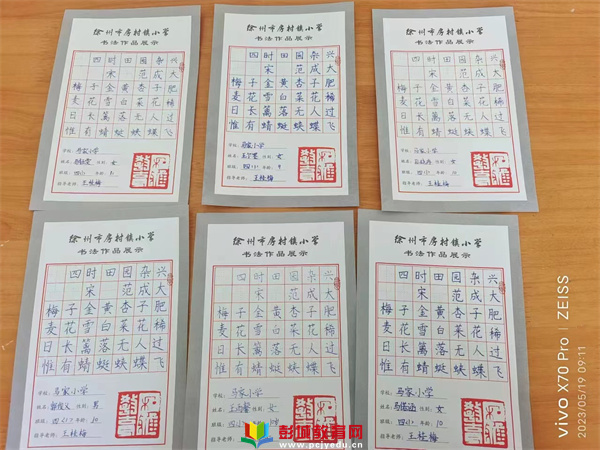 徐州市房村镇小学
书法作品展示
四时田园杂兴
宋 范成大
梅子金黄杏子肥
麦花雪白菜花稀
日长篱落无人过
惟有蜻蜓蛱蝶飞
学校：马家小学
姓名： 性别：女
班级：四(1) 年龄：
指导老师：王桂梅
徐州市房村镇小学
书法作品展示
四时田园杂兴
宋 范成大
梅子金黄杏子肥
麦花雪白菜花稀
日长篱落无人过
惟有蜻蜓蛱蝶飞
学校：马家小学
姓名： 性别：女
班级：四(1) 年龄：9
指导老师：王桂梅
徐州市房村镇小学
书法作品展示
四时田园杂兴
宋 范成大
梅子金黄杏子肥
麦花雪白菜花稀
日长篱落无人过
惟有蜻蜓蛱蝶飞
学校：马家小学
姓名： 性别：女
班级：四(1) 年龄：10
指导老师：王桂梅
徐州市房村镇小学
书法作品展示
四时田园杂兴
宋 范成大
梅子金黄杏子肥
麦花雪白菜花稀
日长篱落无人过
惟有蜻蜓蛱蝶飞
学校：马家小学
姓名： 性别：男
班级：四(1) 年龄：10
指导老师：王桂梅
徐州市房村镇小学
书法作品展示
四时田园杂兴
宋 范成大
梅子金黄杏子肥
麦花雪白菜花稀
日长篱落无人过
惟有蜻蜓蛱蝶飞
学校：马家小学
姓名： 性别：女
徐州市房村镇小学
书法作品展示
四时田园杂兴
宋 范成大
梅子金黄杏子肥
麦花雪白菜花稀
日长篱落无人过
惟有蜻蜓蛱蝶飞
学校：马家小学
姓名： 性别：女
班级：四(1) 年龄：10
指导老师：王桂梅
彭城教育网
www.pcjyedu.cn
vivo X70 Pro | ZEISS
2023/05/19 09:11